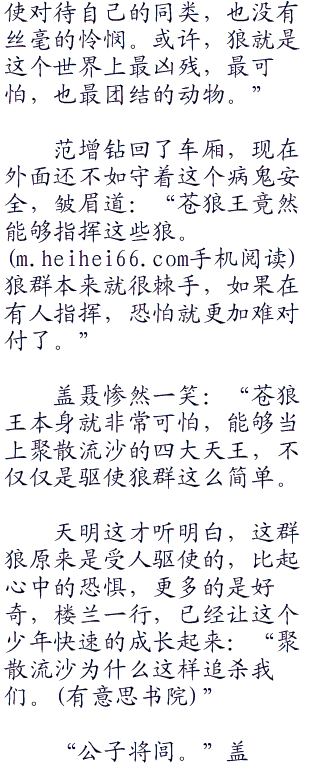 使对待自己的同类，也没有
丝毫的怜悯。或许，狼就是
这个世界上最凶残，最可
怕，也最团结的动物。”
范增钻回了车厢，现在
外面还不如守着这个病鬼安
全，皱眉道：“苍狼王竟然
能够指挥这些狼。
(m.heihei66.com手机阅读)
狼群本来就很棘手，如果在
有人指挥，恐怕就更加难对
付了。”
盖聂惨然一笑：“苍狼
王本身就非常可怕，能够当
上聚散流沙的四大天王，不
仅仅是驱使狼群这么简单。
天明这才听明白，这群
狼原来是受人驱使的，比起
心中的恐惧，更多的是好
奇，楼兰一行，已经让这个
少年快速的成长起来：“聚
散流沙为什么这样追杀我
们。(有意思书院)”
“公子将闾。”盖